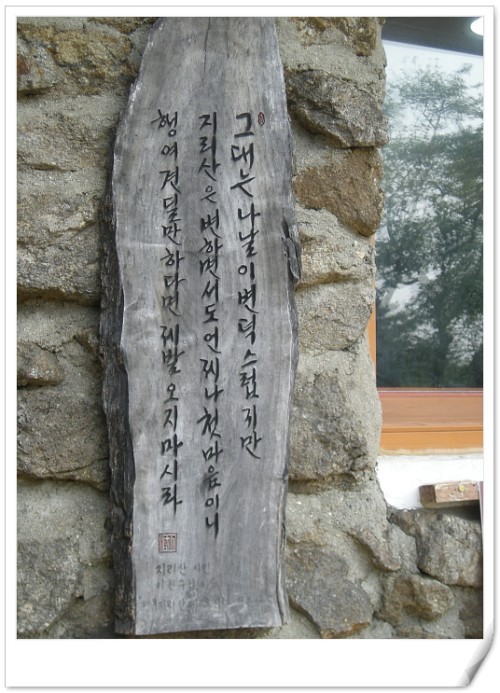 그대는 나날이 변덕스럽지만
지리산은 변하면서도 언제나 첫 마음이니
행여 견딜만 하다면 제발 오지 마시라
지리산 시인